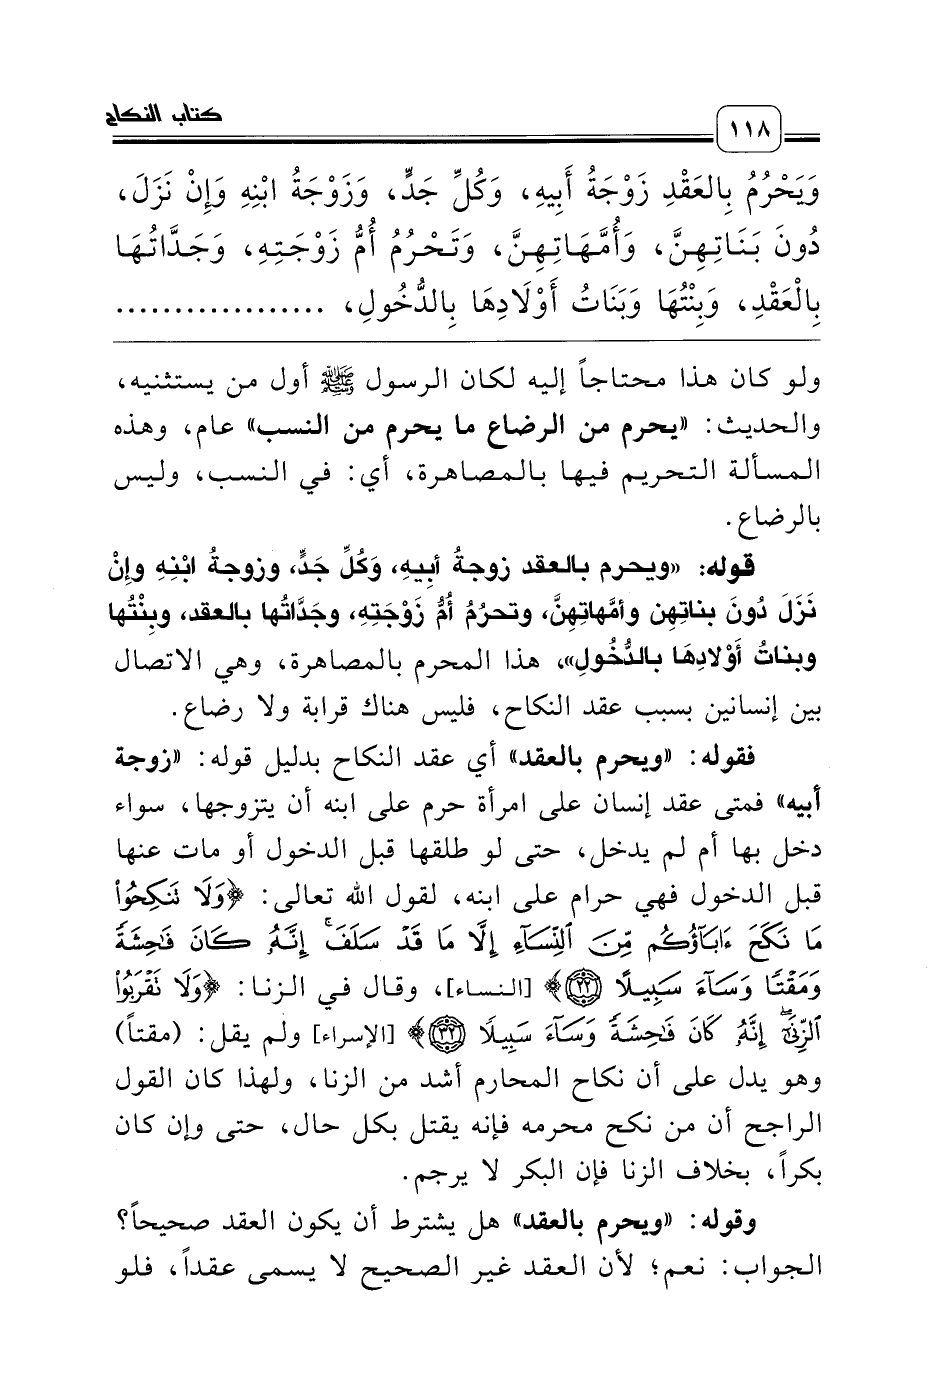 كتاب النكاح
١١٨
وَيَحْرُمُ بِالعَقْدِ زَوْجَةُ أَبِيهِ، وَكُلِّ جَدٍّ، وَزَوْجَةُ ابْنِهِ وَإِنْ نَزَلَ،
دُونَ بَنَاتِهِنَّ، وَأُمَّهَاتِهِنَّ، وَتَحْرُمُ أُمُّ زَوْجَتِهِ، وَجَدَّاتُهَا
بِالْعَقْدِ، وَبِنْتُهَا وَبَنَاتُ أَوْلَادِهَا بِالدُّخُولِ، ..................
ولو كان هذا محتاجاً إليه لكان الرسول ﷺ أول من يستثنيه،
والحديث: «يحرم من الرضاع ما يحرم من النسب» عام، وهذه
المسألة التحريم فيها بالمصاهرة، أي: في النسب، وليس
بالرضاع.
قوله: «ويحرم بالعقد زوجةُ أبيهِ، وَكُلِّ جَدٍّ، وزوجةُ ابْنِهِ وإنْ
نَزَلَ دُونَ بناتِهن وأمَّهاتِهنَّ، وتحرُمُ أُمُّ زَوْجَتِهِ، وجَدَّاتُها بالعقد، وبِنْتُها
وبناتُ أَوْلادِهَا بالدُّخُولِ»، هذا المحرم بالمصاهرة، وهي الاتصال
بين إنسانين بسبب عقد النكاح، فليس هناك قرابة ولا رضاع.
فقوله: «ويحرم بالعقد» أي عقد النكاح بدليل قوله: «زوجة
أبيه» فمتى عقد إنسان على امرأة حرم على ابنه أن يتزوجها، سواء
دخل بها أم لم يدخل، حتى لو طلقها قبل الدخول أو مات عنها
قبل الدخول فهي حرام على ابنه، لقول الله تعالى: ﴿وَلَا تَنكِحُوا۟
مَا نَكَحَ ءَابَآؤُكُم مِّنَ ٱلنِّسَآءِ إِلَّا مَا قَدْ سَلَفَۚ إِنَّهُۥ كَانَ فَٰحِشَةً
وَمَقْتًا وَسَآءَ سَبِيلًا ٢٢﴾ [النساء]، وقال في الزنا: ﴿وَلَا نَقْرَبُوا۟
ٱلزِّنَىٰٓۖ إِنَّهُۥ كَانَ فَٰحِشَةً وَسَآءَ سَبِيلًا ٣٢﴾ [الإسراء] ولم يقل: (مقتاً)
وهو يدل على أن نكاح المحارم أشد من الزنا، ولهذا كان القول
الراجح أن من نكح محرمه فإنه يقتل بكل حال، حتى وإن كان
بكراً، بخلاف الزنا فإن البكر لا يرجم.
وقوله: «ويحرم بالعقد» هل يشترط أن يكون العقد صحيحاً؟
الجواب: نعم؛ لأن العقد غير الصحيح لا يسمى عقداً، فلو